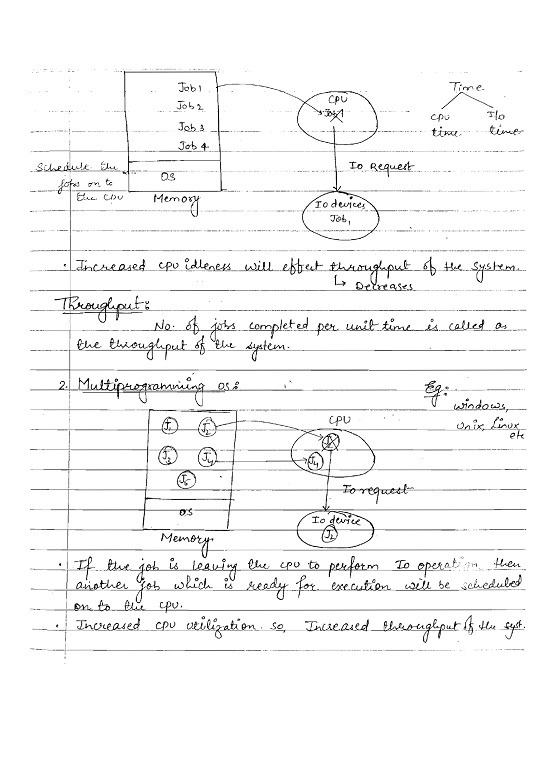 Job 1
Job 2
Job 3
Job 4
OS
Memory
Schedule the
jobs on to
the CPU
CPU
Job 1
IO Request
Io devices
Job1
Time
CPU
time
I/o
time
• Increased cpu idleness will effect throughput of the system.
↳ Decreases
Throughput:
No. of jobs completed per unit time is called as
the throughput of the system.
2. Multiprogramming OS:
Eg:
windows,
Unix, Linux
etc
J1
J2
J3
J4
J5
OS
Memory
CPU
J2
J4
Io request
Io device
J2
• If the job is leaving the cpu to perform Io operation then
another job which is ready for execution will be scheduled
on to the cpu.
• Increased cpu utilization. so, Increased throughput of the syst.